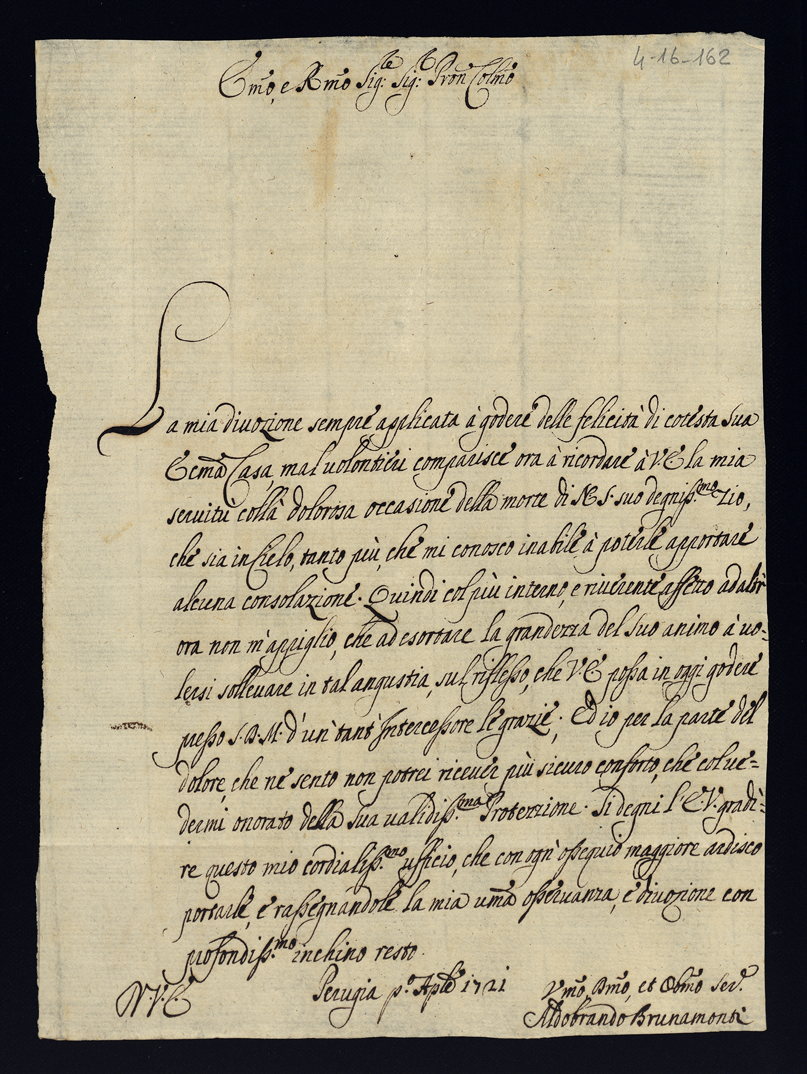 4-16-162
Emo, e Rmo Sig:re Sig:r Pron Colmo
La mia divozione sempre applicata à godere delle felicità di cotesta Sua
Eccma Casa, mal volontieri comparisce ora à ricordare à V E la mia
servitù colla dolorosa occasione della morte di N S. suo degniss.mo Zio,
che sia in Cielo, tanto più, che mi conosco inabile à poterle apportare
alcuna consolazione. Quindi col più interno, e riverente affetto ad altr'
ora non m'appiglio, che ad esortare la grandezza del Suo animo à vo=
lersi sollevare in tal angustia, sul riflesso, che V E possa in oggi godere
presso S. D. M. d'un tant'Intercessore le grazie. Ed io per la parte del
dolore, che ne sento non potrei ricever più sicuro conforto, che col ve=
dermi onorato della sua validiss.ma Protezzione. Si degni l'E V. gradi=
re questo mio cordialiss.mo ufficio, che con ogni ossequio maggiore ardisco
portarle, e rassegnandole la mia uma osservanza, e divozione con
profondiss.mo inchino resto.
Perugia p.o Aple 1721
Vmo, Dmo, et Obmo Ser.e
Aldobrando Brunamonti